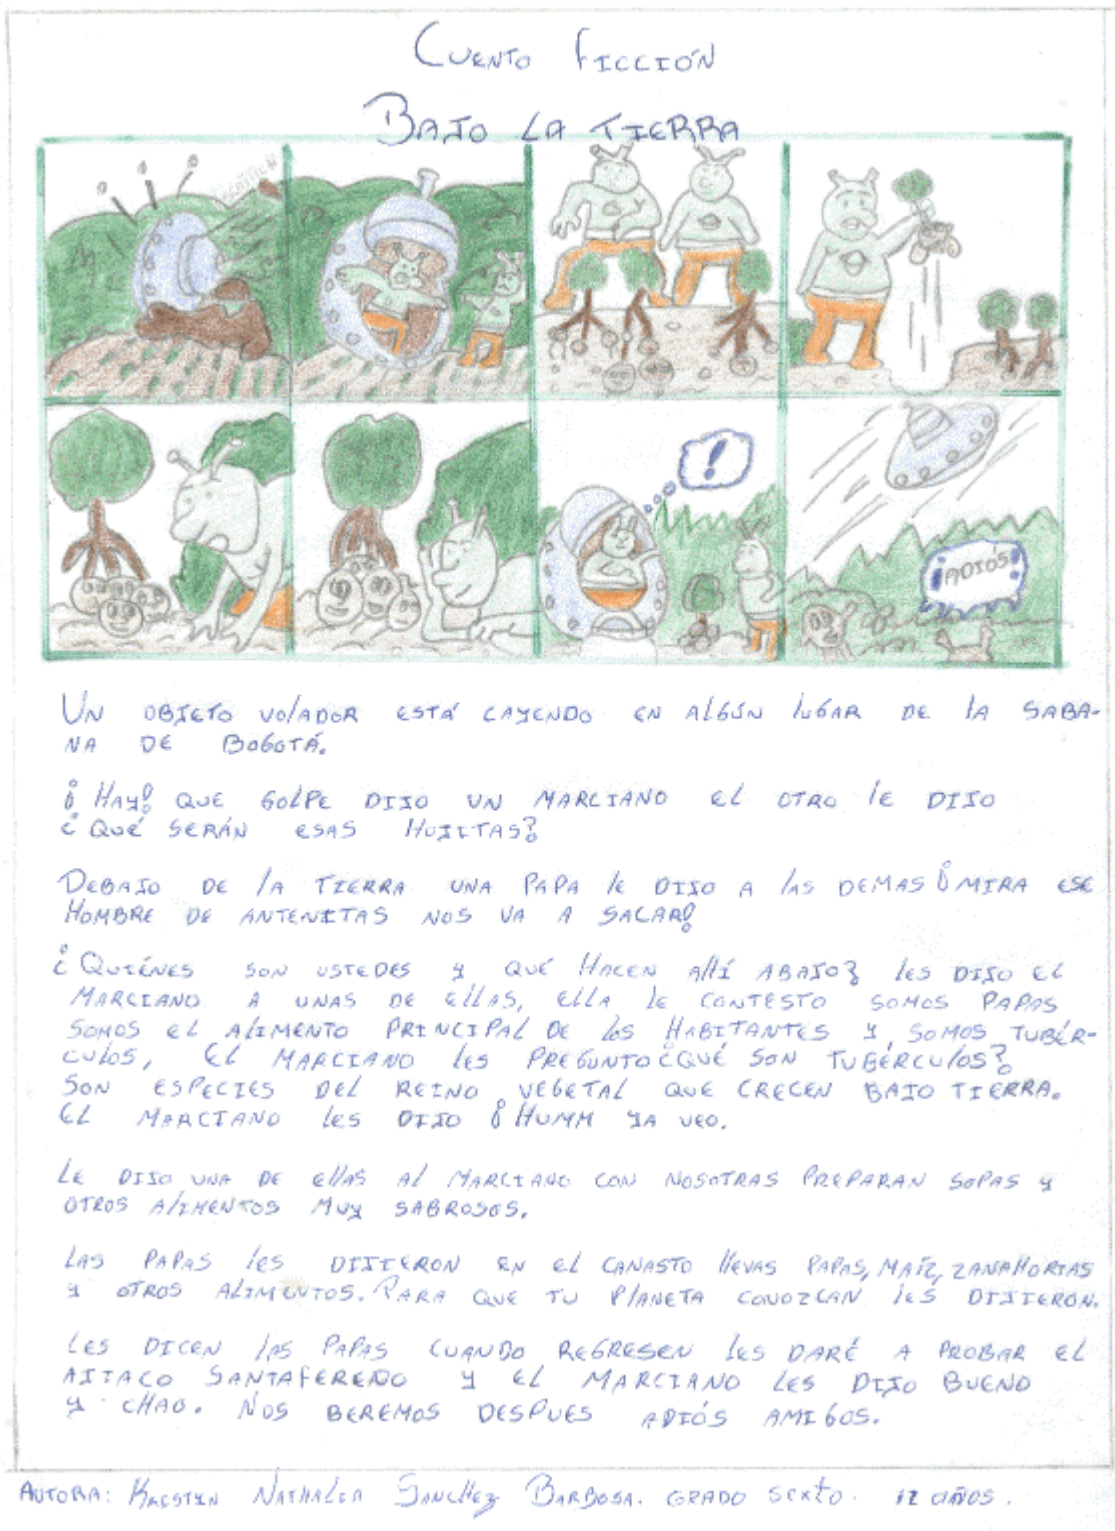 CUENTO FICCIÓN
BAJO LA TIERRA
¡ADIÓS!
UN OBJETO VOLADOR ESTÁ CAYENDO EN ALGÚN LUGAR DE LA SABA-
NA DE BOGOTÁ.
¡HAY! QUE GOLPE DIJO UN MARCIANO EL OTRO LE DIJO
¿QUÉ SERÁN ESAS HOJITAS?
DEBAJO DE LA TIERRA UNA PAPA LE DIJO A LAS DEMAS ¡MIRA ESE
HOMBRE DE ANTENITAS NOS VA A SACAR!
¿QUIÉNES SON USTEDES Y QUÉ HACEN ALLÍ ABAJO? LES DIJO EL
MARCIANO A UNAS DE ELLAS, ELLA LE CONTESTO SOMOS PAPAS
SOMOS EL ALIMENTO PRINCIPAL DE LOS HABITANTES Y, SOMOS TUBÉR-
CULOS, EL MARCIANO LES PREGUNTO ¿QUÉ SON TUBÉRCULOS?
SON ESPECIES DEL REINO VEGETAL QUE CRECEN BAJO TIERRA.
EL MARCIANO LES DIJO ¡HUMM YA VEO.
LE DIJO UNA DE ELLAS AL MARCIANO CON NOSOTRAS PREPARAN SOPAS Y
OTROS ALIMENTOS MUY SABROSOS.
LAS PAPAS LES DIJIERON EN EL CANASTO LLEVAS PAPAS, MAÍZ, ZANAHORIAS
Y OTROS ALIMENTOS. PARA QUE TU PLANETA CONOZCAN LES DIJIERON.
LES DICEN LAS PAPAS CUANDO REGRESEN LES DARÉ A PROBAR EL
AJIACO SANTAFEREÑO Y EL MARCIANO LES DIJO BUENO
Y CHAO. NOS BEREMOS DESPUES ADIÓS AMIGOS.
AUTORA: NATHALIA SANCHEZ BARBOSA. GRADO SEXTO. 12 AÑOS.